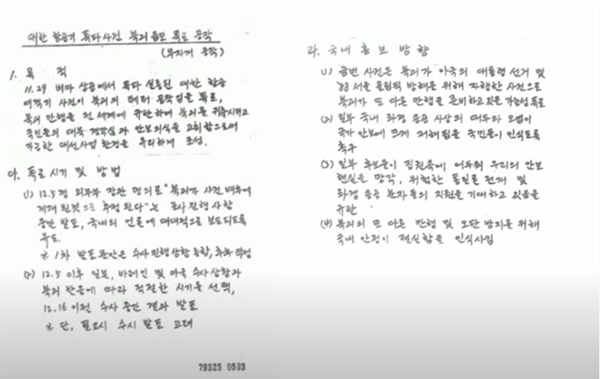 대한 항공기 폭파사건 북괴음모 폭로 공작
(무지개 공작)
1. 목 적
11.29 버마 상공에서 폭파 실종된 대한 항공
여객기 사건이 북괴의 테러 공작임을 폭로,
북괴 만행을 전 세계에 규탄하여 북괴를 위축시키고
국민들의 대북 경각심과 안보의식을 고취함으로써
가능한 대선사업 환경을 유리하게 조성.
다. 폭로 시기 및 방법
(1) 12.5경 외무부 장관 명의로 "북괴가 사건 배후에
게재된것으로 추정 된다"는 조사 진행 사항
중간 발표, 국내외 언론에 대대적으로 보도되도록
유도.
※ 1차 발표문안은 수사진행상황 종합, 추후 작성
(2) 12.5 이후 일본, 바레인 및 미국 수사 상황과
북괴 반응에 따라 적절한 시기를 선택,
12.16 이전 수사 중간 결과 발표
※ 단, 필요시 수시 발표 고려
79325 0533
라. 국내 홍보 방향
(1) 금번 사건은 북괴가 아국의 대통령 선거 및
'88 서울 올림픽 방해를 위해 자행한 사건으로
북괴가 또 다른 만행을 준비하고 있을 가능성 폭로
(2) 일부 국내 좌경 용공 사상의 대두와 오염이
국가 안보에 크게 저해됨을 국민들이 인식토록
촉구
(3) 일부 후보들이 집권욕에 어두워 우리의 안보
현실을 망각, 위험한 통일론 전개 및
좌경 용공 분자들의 지원을 기대하고 있음을
규탄
(4) 북괴의 또 다른 만행 및 오판 방지를 위해
국내 안정이 절실함을 인식시킴